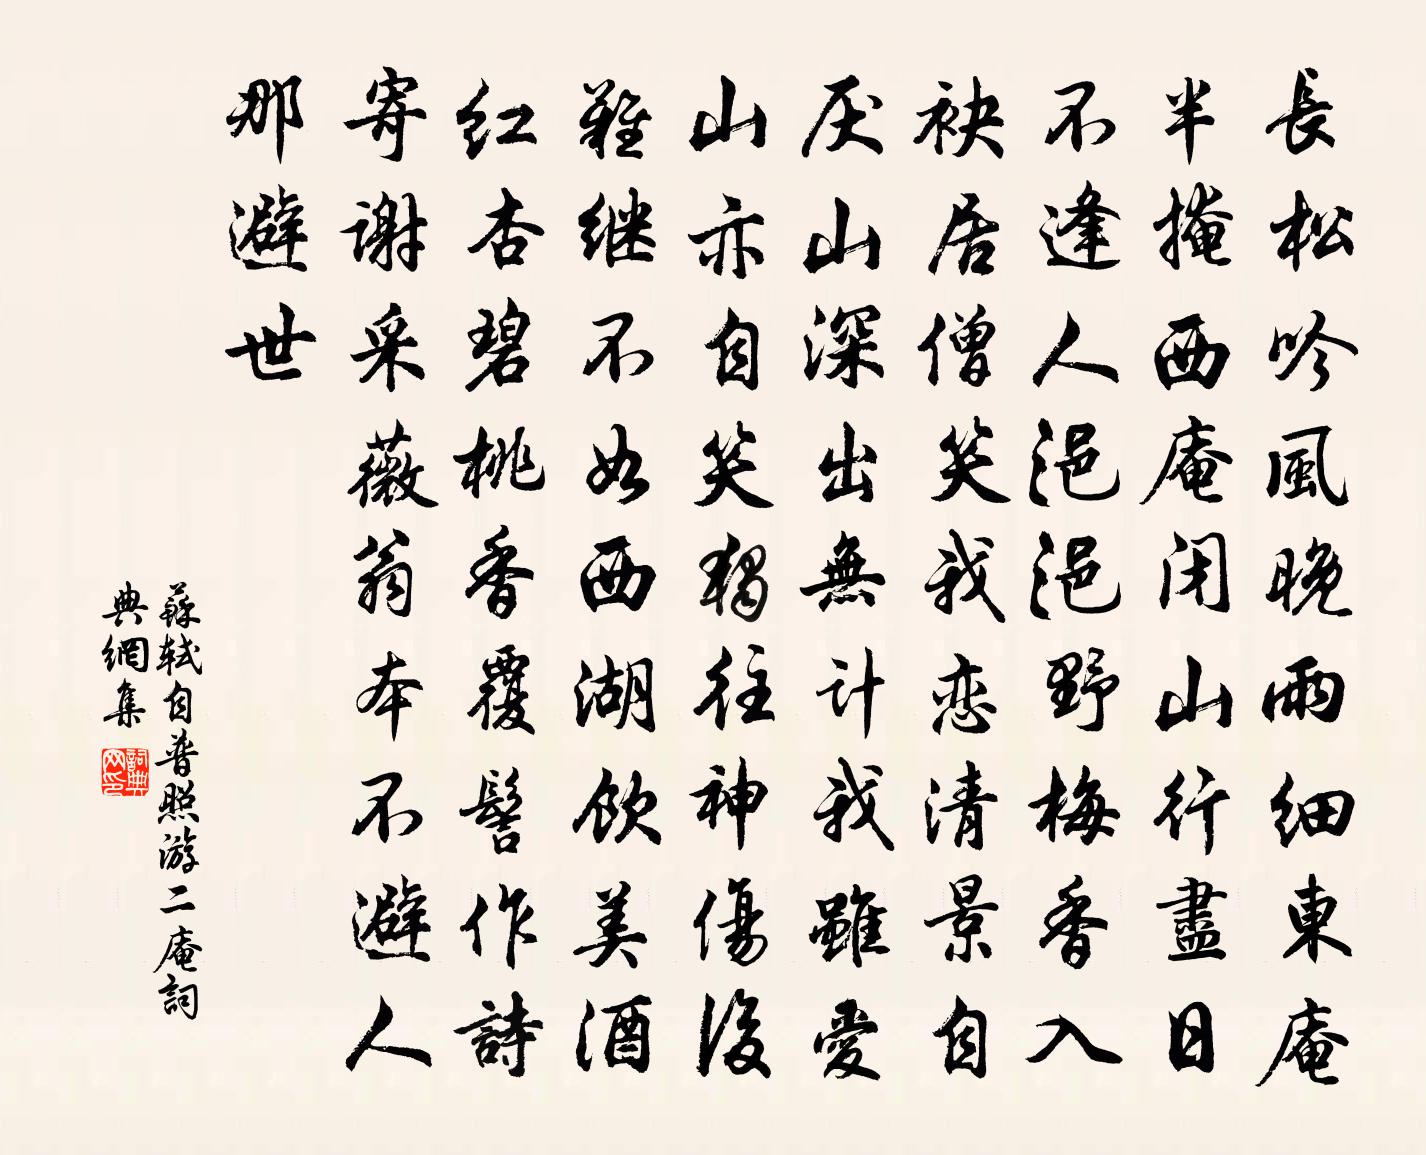 長松吟風晚雨細東庵
半掩西庵闭山行盡日
不逢人浥浥野梅香入
袂居僧笑我恋清景自
厌山深出無计我雖愛
山亦自笑獨往神傷後
難继不如西湖飲美酒
红杏碧桃香覆髻作詩
寄谢采薇翁本不避人
那避世
蘇轼自普照游二庵詞
典網集
詞典
网印